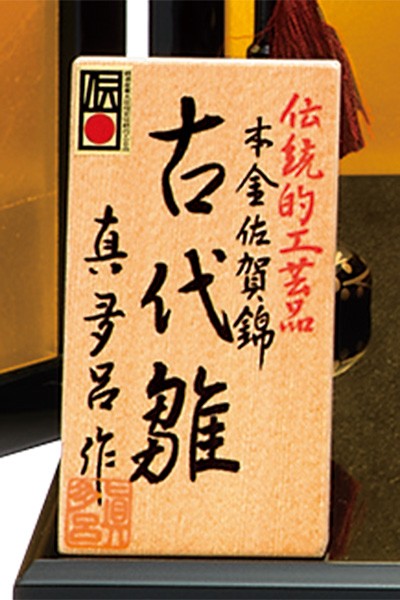 伝統的工芸品
本金佐賀錦
古代雛
真多呂作
伝
真多呂